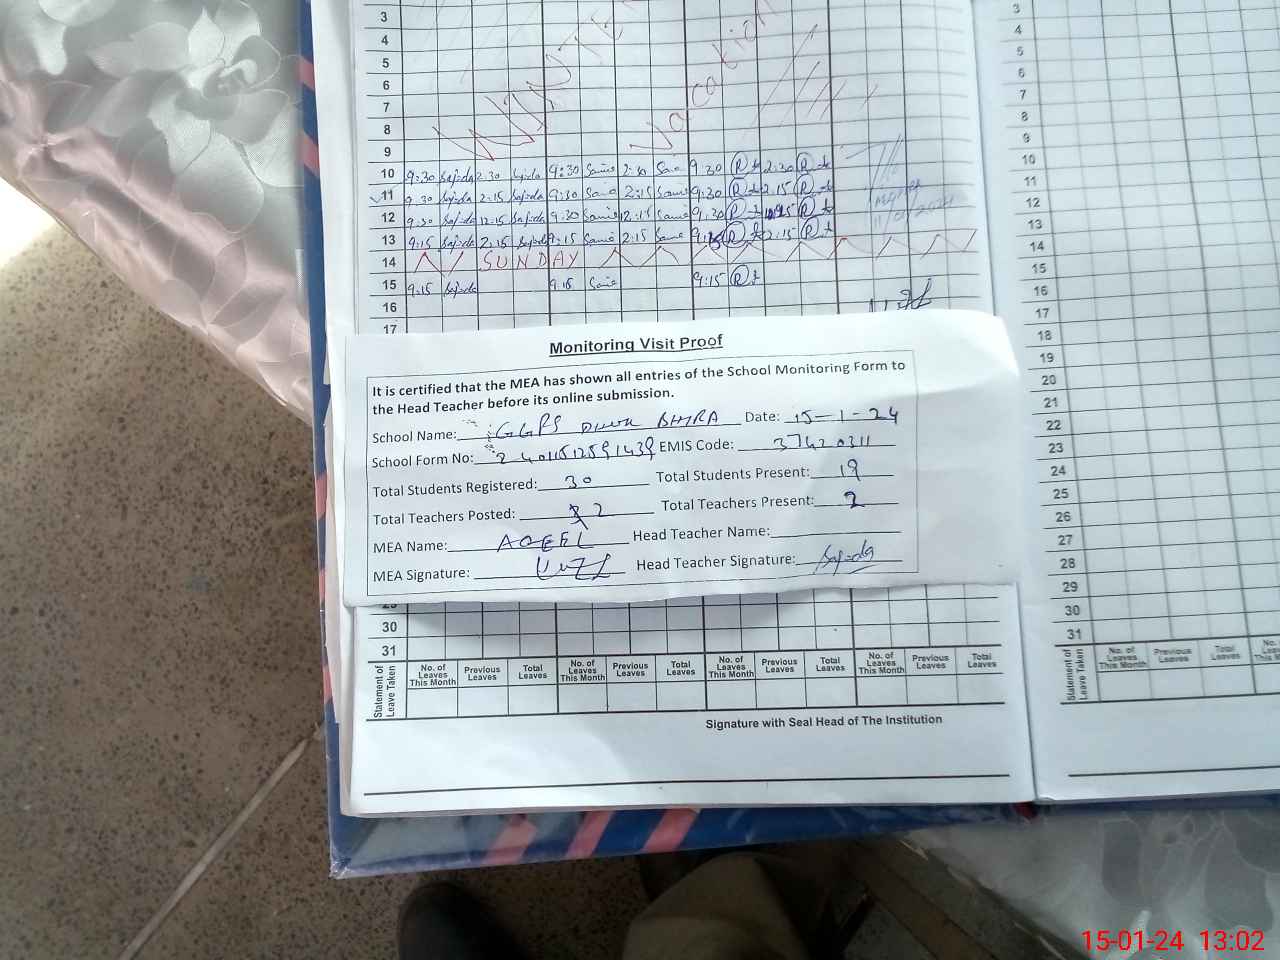 3 3
4 4
5 5
6 6
7 7
8 8
9 9
WINTER Vacation
10 9:30 Sajida 2:30 Sajida 9:30 Same 2:30 Same 9:30 R 2:30 R 10
11 9:30 Sajida 2:15 Sajida 9:30 Same 2:15 Same 9:30 R 2:15 R 11
12 9:30 Sajida 12:15 Sajida 9:30 Same 12:15 Same 9:30 R R 12
13 9:15 Sajida 2:15 Sajida 9:15 Same 2:15 Same 9:15 R 2:15 R 13
14 SUNDAY 14
15 9:15 Sajida 9:15 Same 9:15 R 15
16 16
17 17
18
19
20
21
22
23
24
25
26
27
28
29
30
31
Monitoring Visit Proof
It is certified that the MEA has shown all entries of the School Monitoring Form to
the Head Teacher before its online submission.
School Name: GGPS BHTRA Date: 15-1-24
School Form No: EMIS Code: 37420311
Total Students Registered: 30 Total Students Present: 19
Total Teachers Posted: 2 Total Teachers Present: 2
MEA Name: AQEEL Head Teacher Name:
MEA Signature: Head Teacher Signature: Sajida
30
31
Statement of Leave Taken No. of Leaves This Month Previous Leaves Total Leaves No. of Leaves This Month Previous Leaves Total Leaves No. of Leaves This Month Previous Leaves Total Leaves No. of Leaves This Month Previous Leaves Total Leaves
Statement of Leave Taken No. of Leaves This Month Previous Leaves Total Leaves
Signature with Seal Head of The Institution
15-01-24 13:02